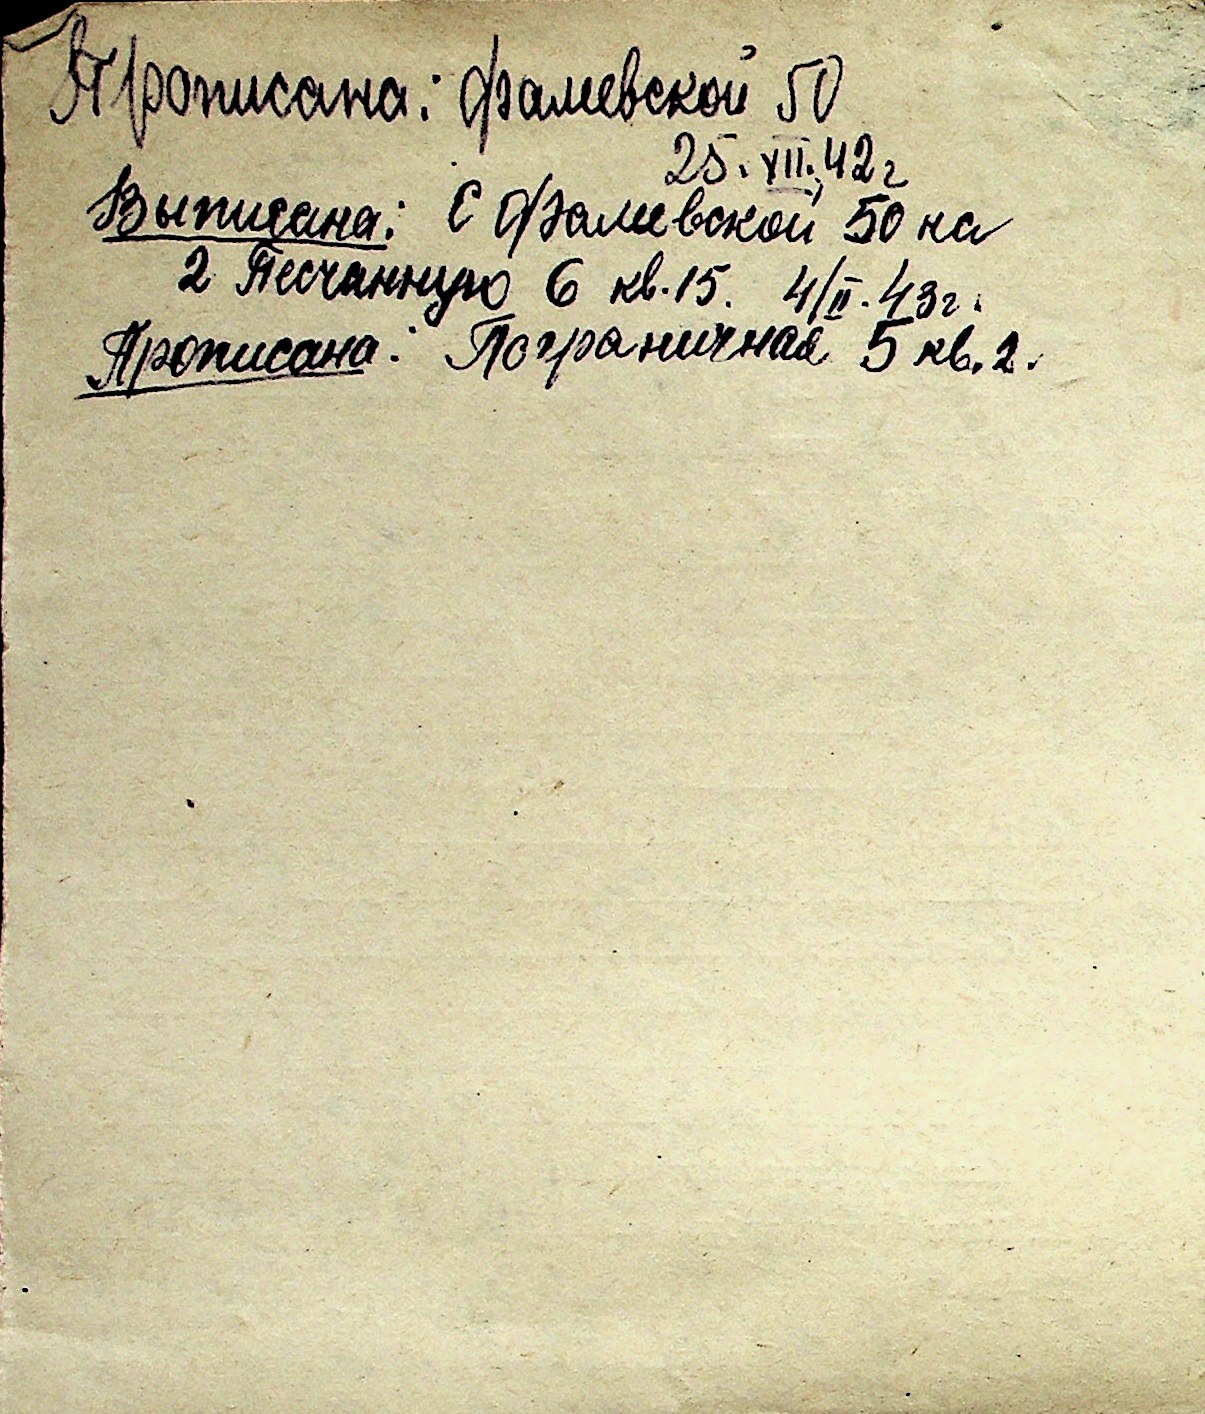 Прописана: Фалиевской 50
25.XII.42г
Выписана: С Фалиевской 50 на
2 Песчанную 6 кв.15. 4/II.43г.
Прописана: Пограничная 5 кв.2.